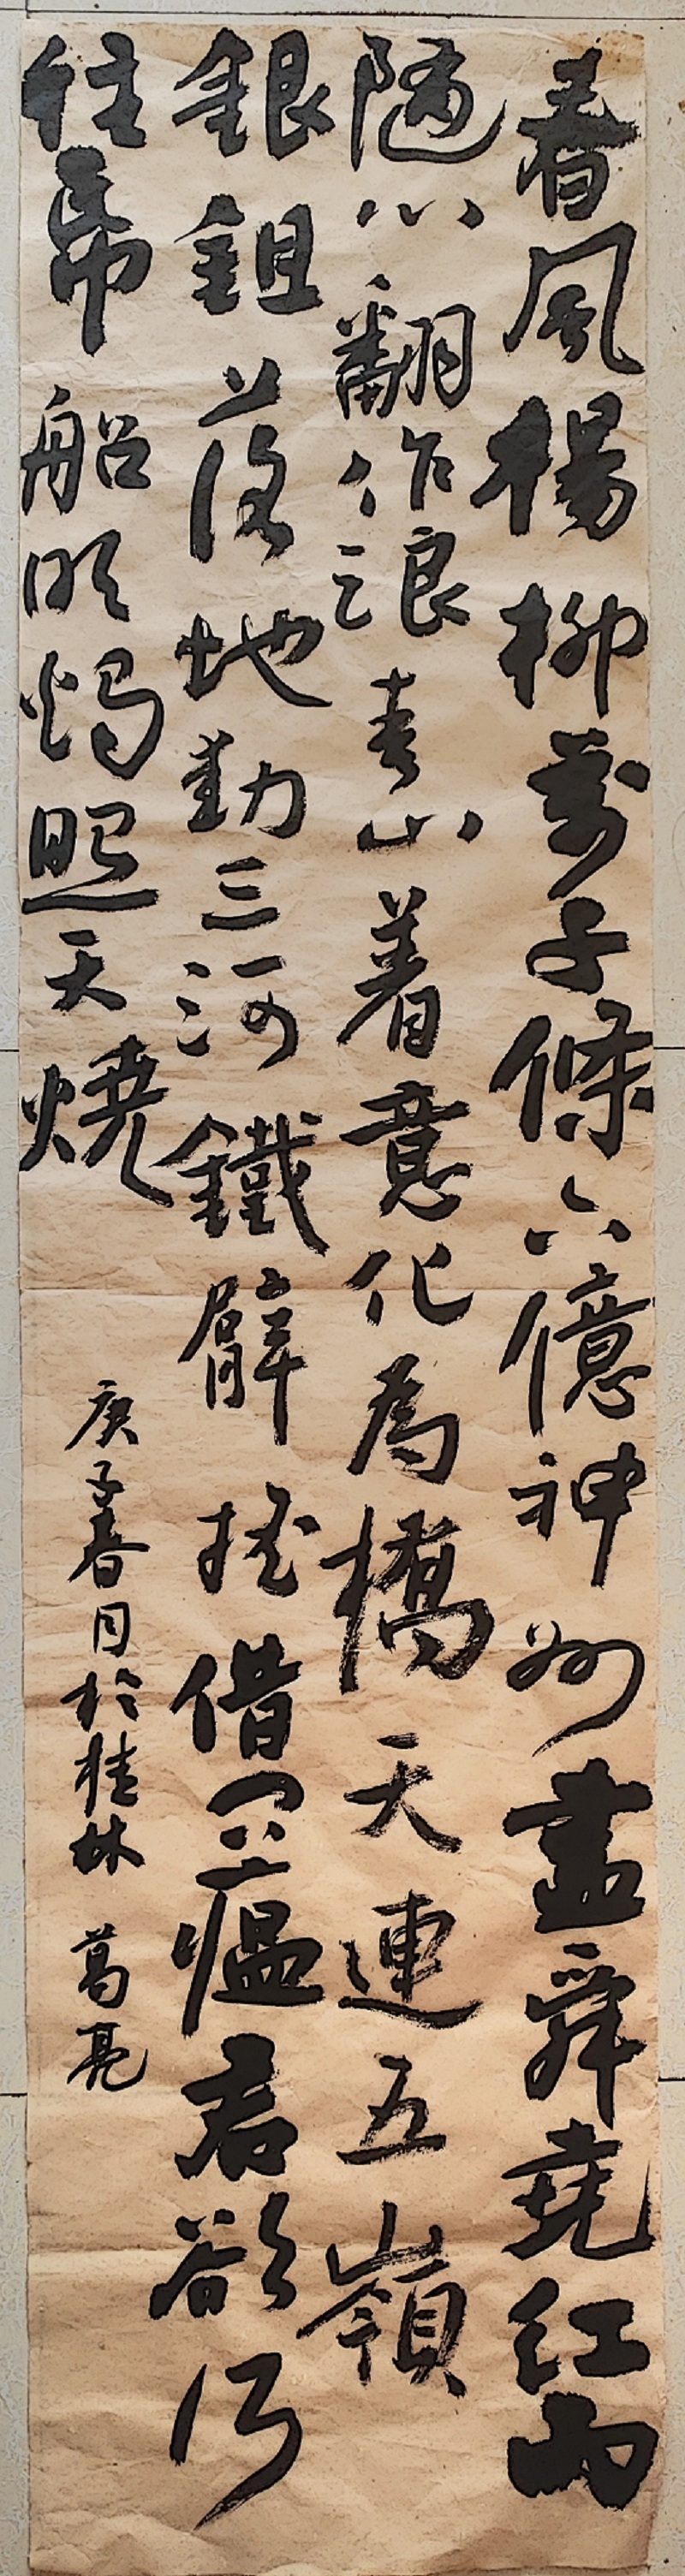 春風楊柳萬千條六億神州盡舜堯紅雨
隨心翻作浪青山着意化為橋天連五嶺
銀鉏落地動三河鐵臂搖借問瘟君欲何
往帋船明燭照天燒
庚子春日於桂林 葛亮